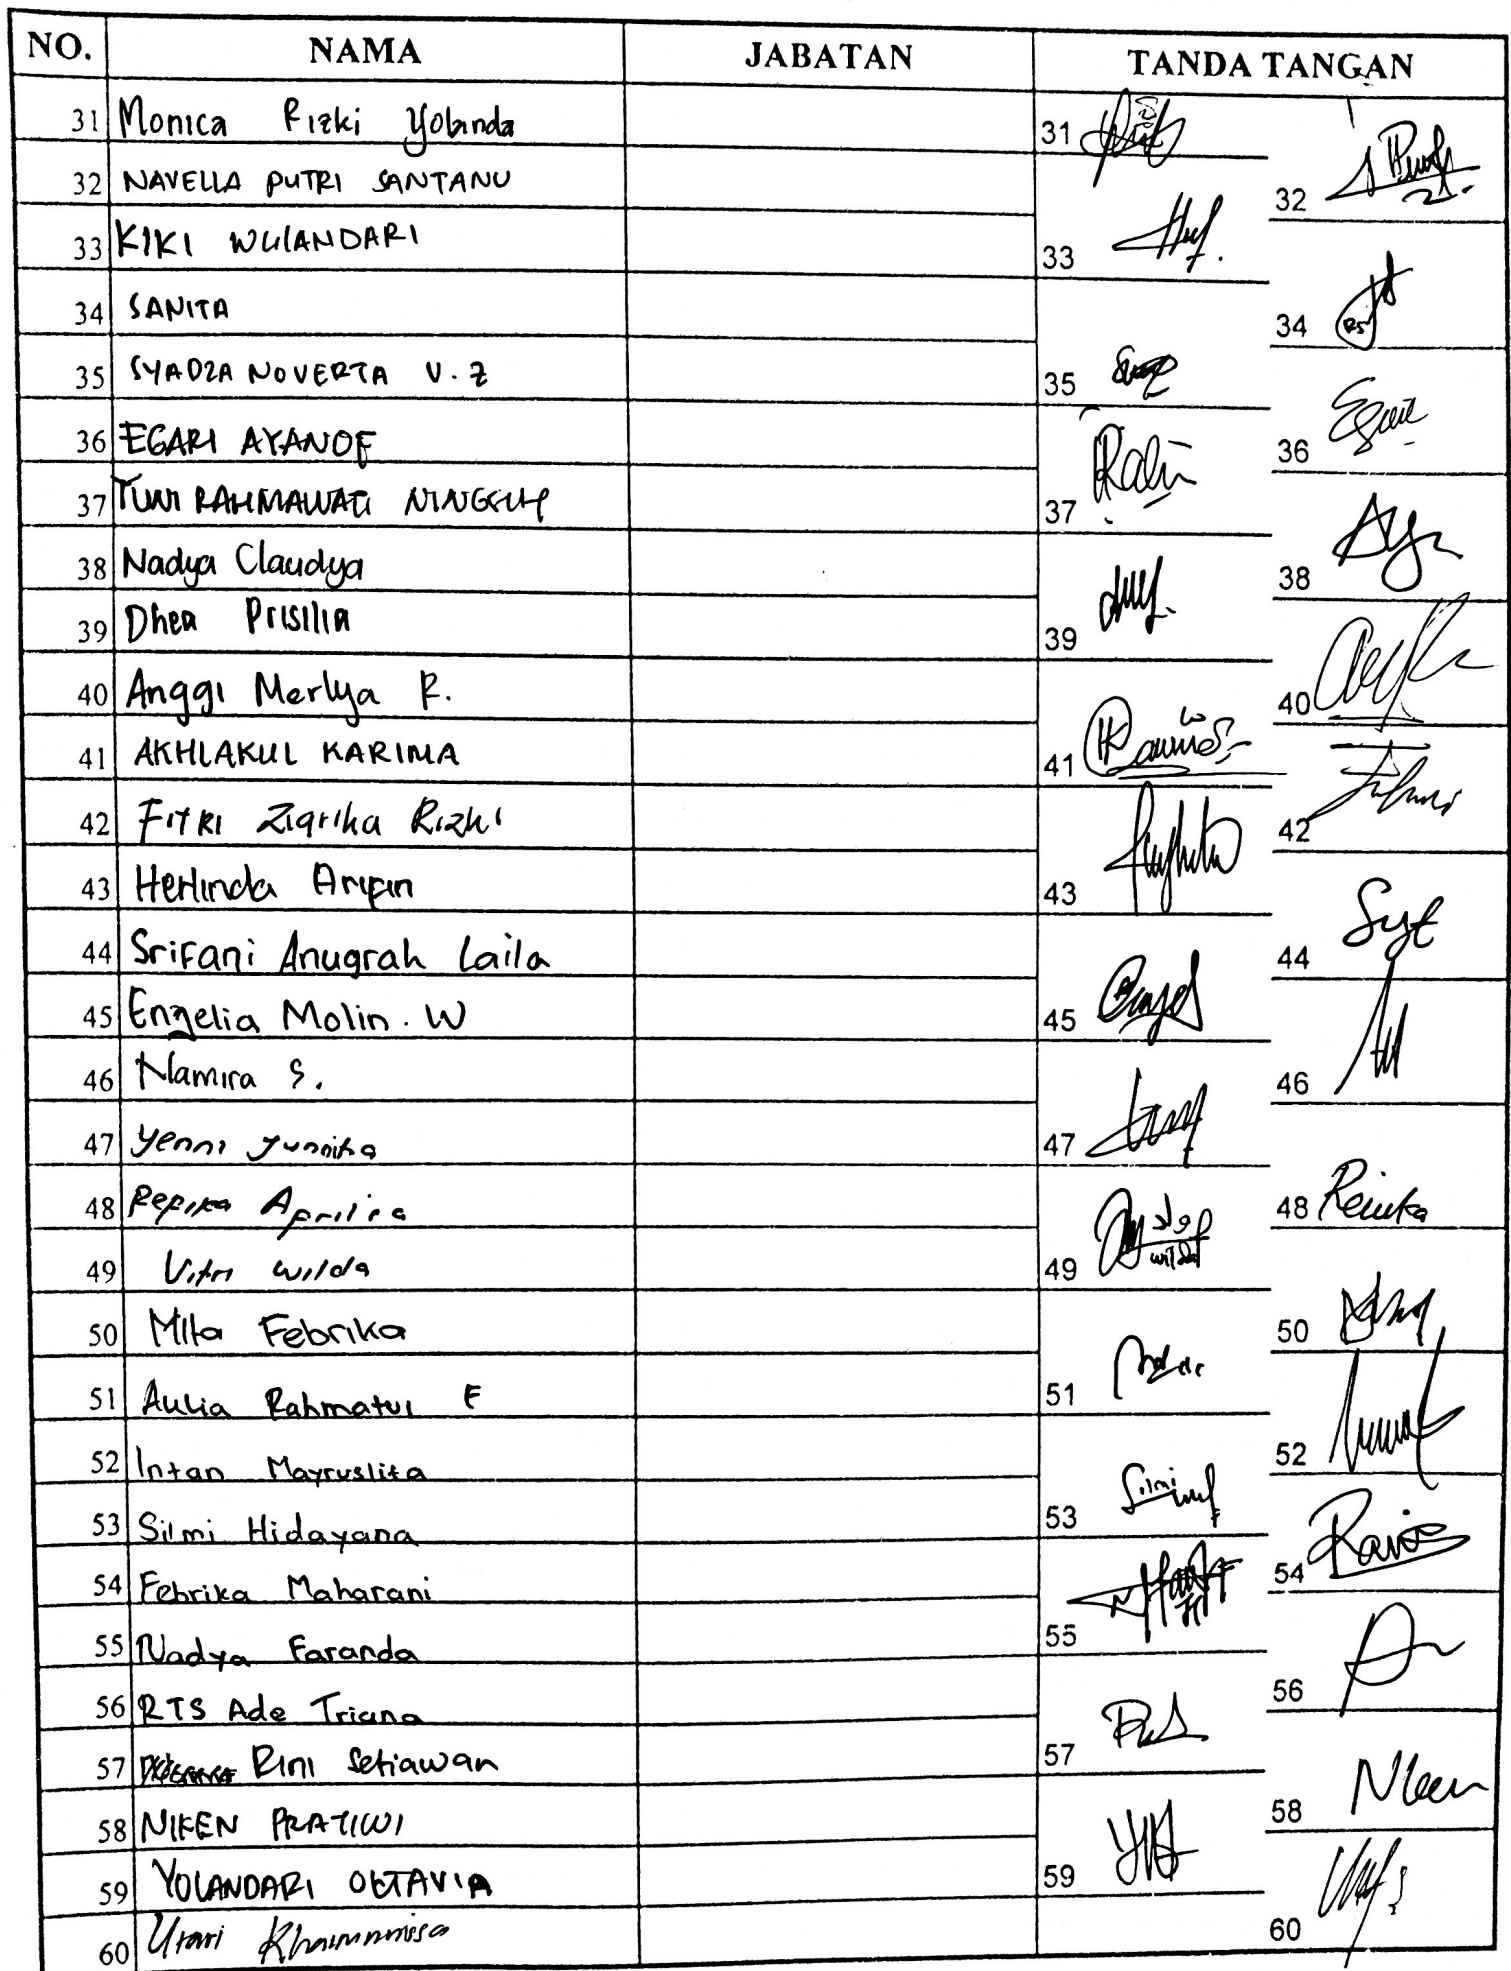 NO. NAMA JABATAN TANDA TANGAN
31 Monica Rizki Yolanda 31
32 NAVELLA PUTRI SANTANU 32
33 KIKI WULANDARI 33
34 SANITA 34
35 SYADZA NOVERTA V. Z 35
36 EGARI AYANOF 36
37 RAHMAWATI 37
38 Nadya Claudya 38
39 Dhea Prisilia 39
40 Anggi Merlya R. 40
41 AKHLAKUL KARIMA 41
42 FITRI Ziqrika Rizki 42
43 Herlinda Aripin 43
44 Srifani Anugrah Laila 44
45 Engelia Molin . W 45
46 Namira S. 46
47 Yenni Yunnika 47
48 Repika Aprilia 48
49 Vitri Wilda 49
50 Mita Febrika 50
51 Aulia Rahmatul F 51
52 Intan Mayruslita 52
53 Silmi Hidayana 53
54 Febrika Maharani 54
55 Nadya Faranda 55
56 RTS Ade Triana 56
57 Rini Setiawan 57
58 NIKEN PRATIWI 58
59 YOLANDARI OKTAVIA 59
60 Utari Khairunnisa 60